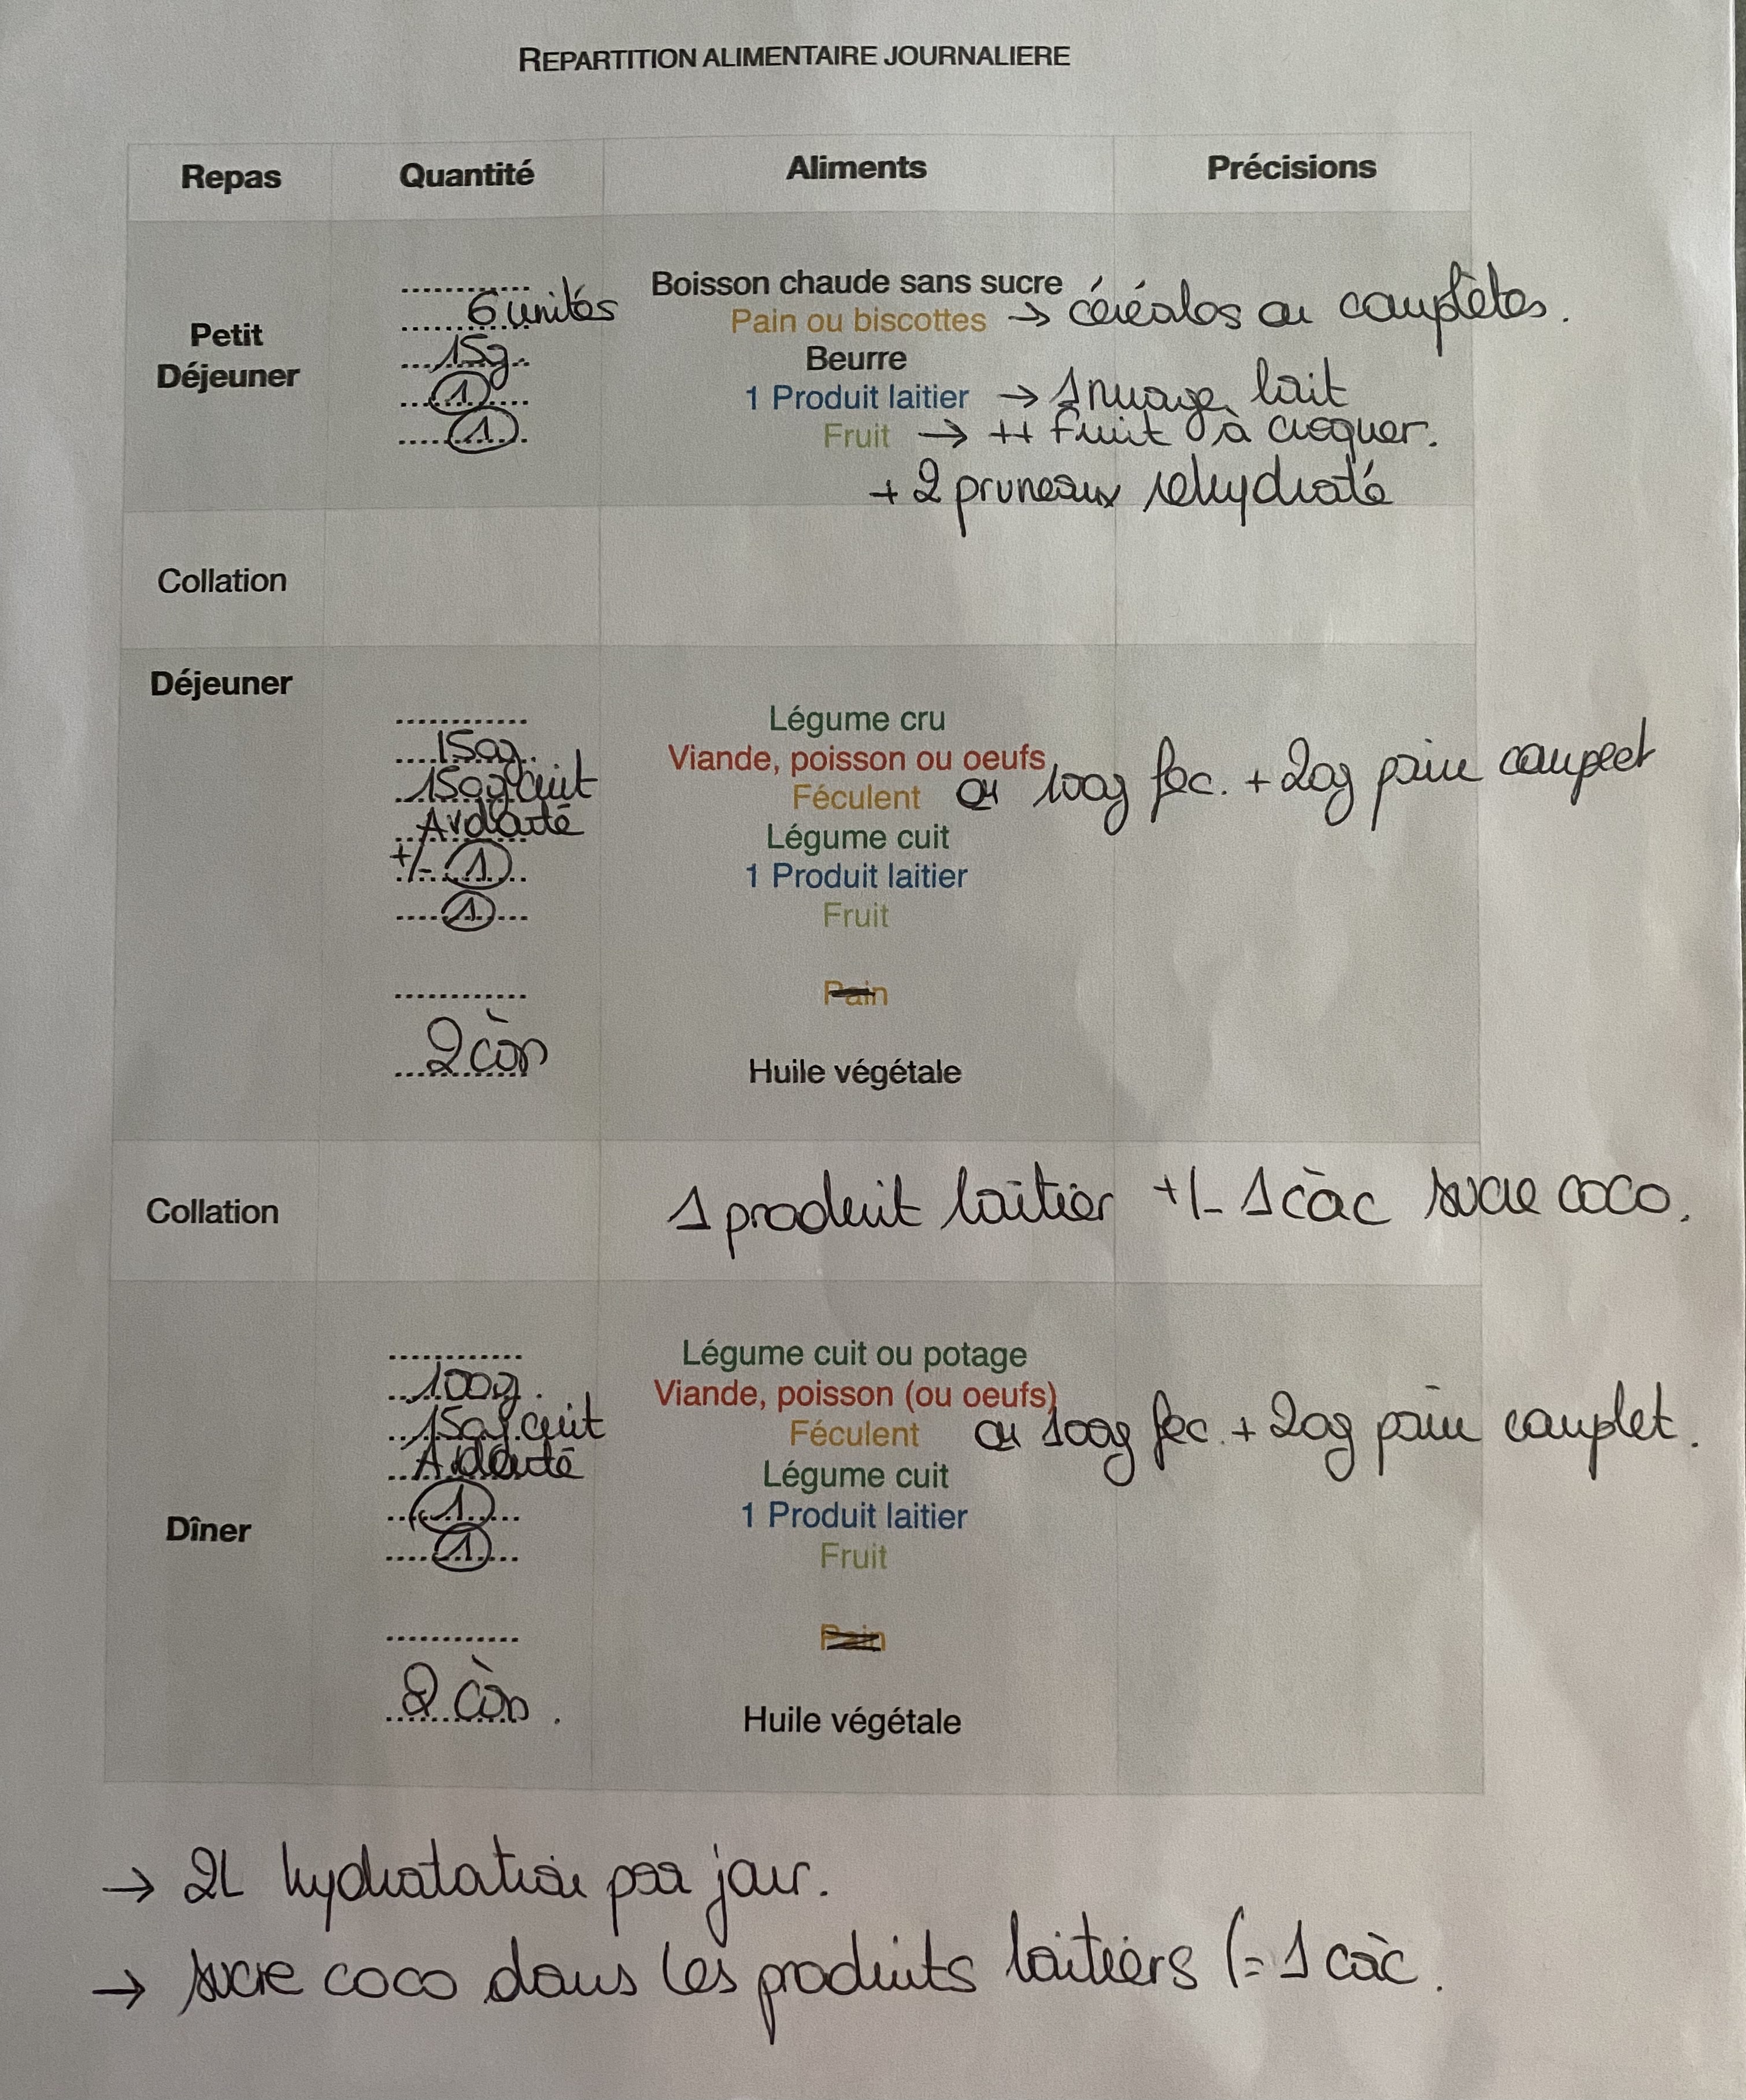 REPARTITION ALIMENTAIRE JOURNALIERE
Repas Quantité Aliments Précisions
Petit Déjeuner
............ Boisson chaude sans sucre
6 unités Pain ou biscottes → céréales ou complètes.
15g. Beurre
1 1 Produit laitier → 1 nuage lait
1 Fruit → ++ fruit à croquer.
+ 2 pruneaux rehydraté
Collation
Déjeuner
............ Légume cru
150g. Viande, poisson ou oeufs
150g cuit Féculent ou 100g fec. + 20g pain complet
A volonté Légume cuit
+/- 1 1 Produit laitier
1 Fruit
............ Pain
2 càs Huile végétale
Collation 1 produit laitier +/- 1 càc sucre coco.
Dîner
............ Légume cuit ou potage
100g. Viande, poisson (ou oeufs)
150g cuit Féculent ou 100g fec. + 20g pain complet.
A volonté Légume cuit
1 1 Produit laitier
1 Fruit
............ Pain
2 càs. Huile végétale
→ 2L hydratation par jour.
→ sucre coco dans les produits laitiers (= 1 càc.